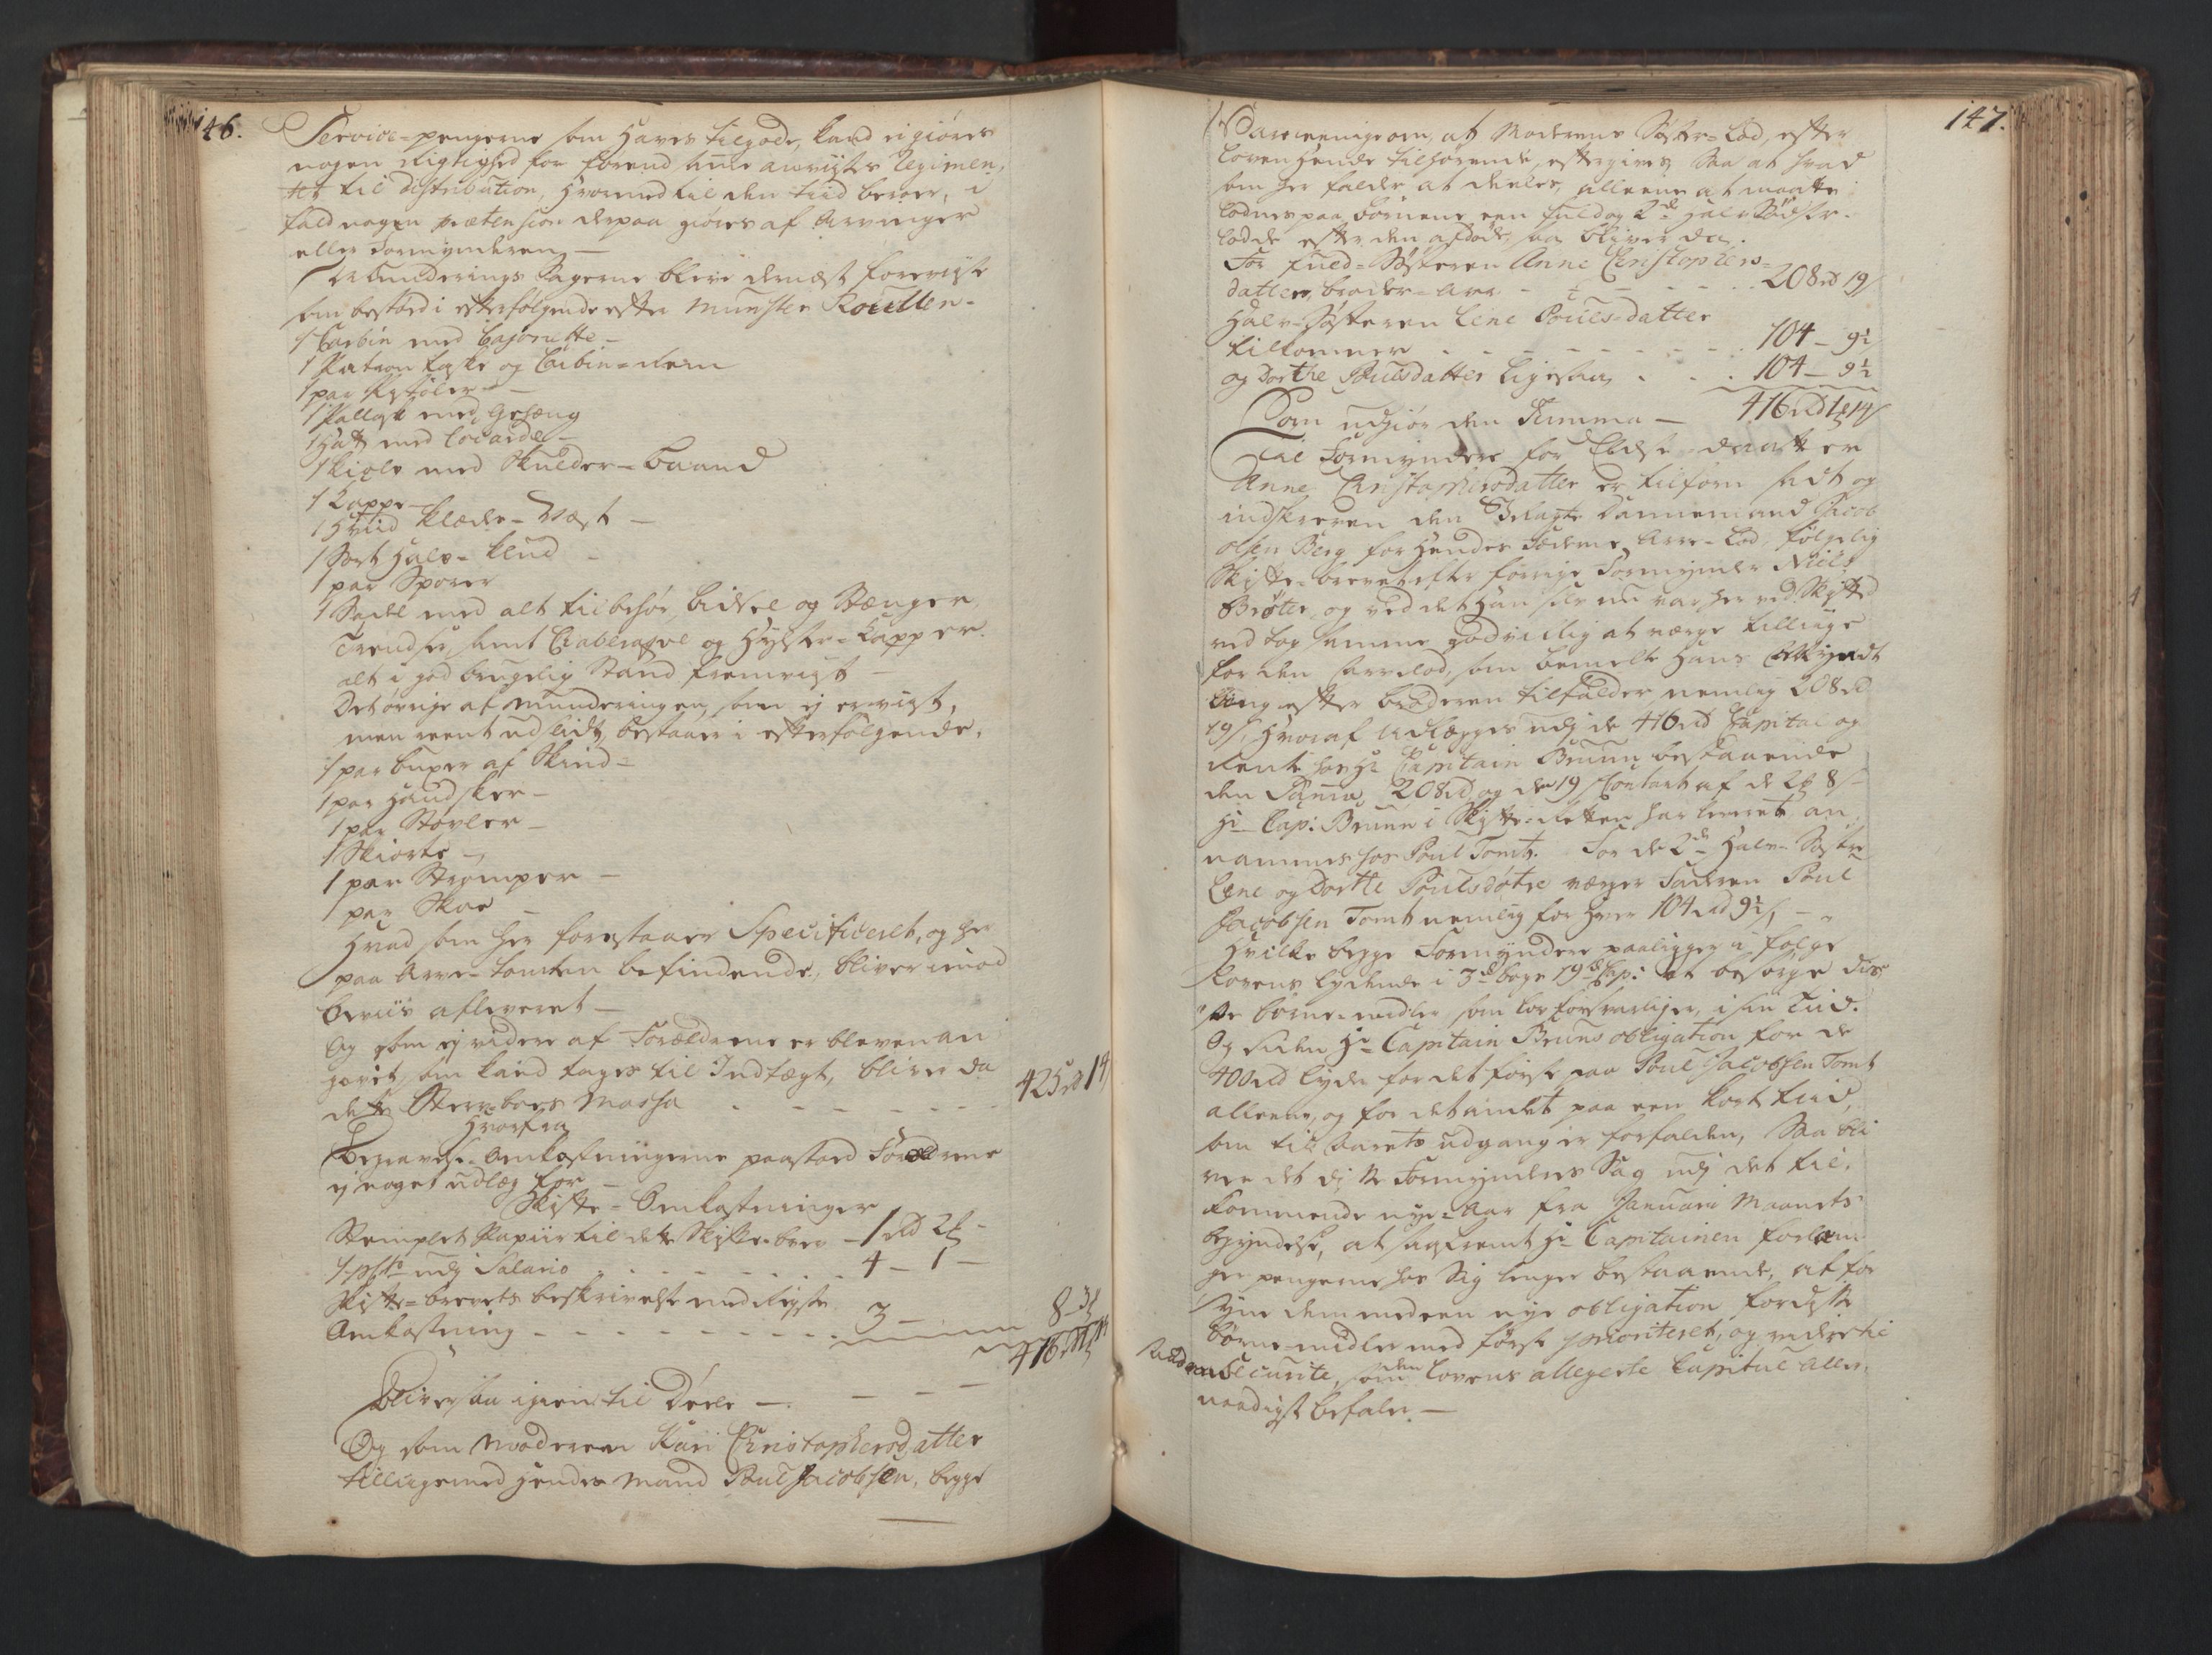 146.
Service-pengerne som haves tilgode, kand ei giøres
nogen Rigtighed for forend hine anviiste Regimen-
tet til distribution, hvormed til den tiid beroer, i
fald nogen prætension derpaa giøres af Arvinger
eller Formynderen —
Munderings Sagerne bleve dernæst foreviiste
som bestod i efterfølgende efter Munster Roullen -
1 Carbin med Bajonette —
1 Patron taske og Carbin-Rem
1 par Pistoler —
1 Pallask med Gehæng
1 Hatt med Cocarde —
1 Kiole med Skulder-baand
1 Kappe —
1 Hviid Klæde-Væst —
1 Sort Hals-klud —
1 par Sporer
1 Sadel med alt tilbehør, bidsel og Stænger,
Trendser, samt Chabraqve og Hylster-Kapper
alt i god brugelig Stand fremviist —
Det øvrige af Munderingen, som ej er viist,
men reent udslidt, bestaaer i efterfølgende,
1 par buxer af Skind —
1 par Handsker —
1 par Støvler —
1 Skiorte —
1 par Strømper —
1 par Skoe —
Hvad som her forestaaer Specificeret, og her
paa Arve-tomten befindende, bliver imod
beviis afleveret —
Og som ej videre af Forældrene er bleven an
givet, som kand tages til Indtægt, bliver da
dette Sterv-boes Massa - - - - - - 425 rd 14
Hvorfra
Begravelse-Omkostningerne paastod Forældrene
ej noget udlæg for —
Skifte-Omkostninger
Stemplet Papiir til dette Skifte-brev — 1 rd 2 -
udj Salario - - - - - 4 - 1 -
Skifte-brevets beskrivelse med Rejse
Omkostning - - - - - - - 3 — 8 - 3
Bliver saa igien til Deele — — — 416
Og som Moderen Kari Christophersdatter
tilligemed hendes Mand Poul Jacobsen, begge
147.
Vare eenige om, at Moderens Søster-Lod, efter
Loven hende tilhørende, eftergives, Saa at hvad
som her falder at deeles, alleene at maatte
lodnes paa børnene een fuld og 2de halv Sødsker-
lodde efter den afdøde, saa bliver da
For fuld-Søsteren Anne Christophers-
datter, broder-Arv - - - - 208 rd 19
Halv-Søsteren Lene Pouls-datter
tilkommer - - - - - - 104 - 9½
og Dorthe Poulsdatter Ligesaa - - - 104 - 9½
Som udgiør den Summa — 416 rd 14
Til Formyndere for Eldste datter
Anne Christophersdatter er tilforn sadt og
indskreven den Velagte Dannemand Jacob
Olsen Berg for hendes Fæderne Arve-Lod, følgelig
Skifte-brevet efter forrige Formynder Niels
Brøter, og ved det han selv nu var her ved Skiftet
vedtog samme godvillig at værge tillige
for den Arvelod, som bemelte hans Myndt
ling efter broderen tilfalder, nemlig 208 rd
19, hvoraf udlægges udj de 416 rd Capital og
Rente hos Hr Capitain Bruun bestaaende
den Summa 208 rd og de 19 Contant af de 2 8
Hr Cap: Bruun i Skifte-Retten har leveret an
nammes hos Poul Tomt. For de 2de Halv-Søstre
Lene og Dorthe Poulsdøttre værger Faderen Poul
Jacobsen Tomt nemlig for hver 104 rd 9½ —
Hvilke begge Formyndere paaligger i følge
Lovens lydende i 3die bogs 19de Cap: at besørge dis
se børne-midler som lov forsvarligen, i sin tiid.
Og siden Hr Capitain Bruns obligation for de
400 rd lyder for det første paa Poul Jacobsen Tomt
alleene, og for det andet paa een kort tiid,
som til Aarets udgang er forfalden, Saa bli
ver det disse Formynderes Sag udj det til-
kommende nye-Aar fra Januari Maaneds
begyndelse, at saafremt Hr Capitainen forlan
ger pengerne hos Sig lenger bestaaende, at for
syne dem med een nye obligation for disse
børne-midler med første prioritet, og videre til
Securite, som den Lovens allegerte Capitul aller-
naadigst befaler. —